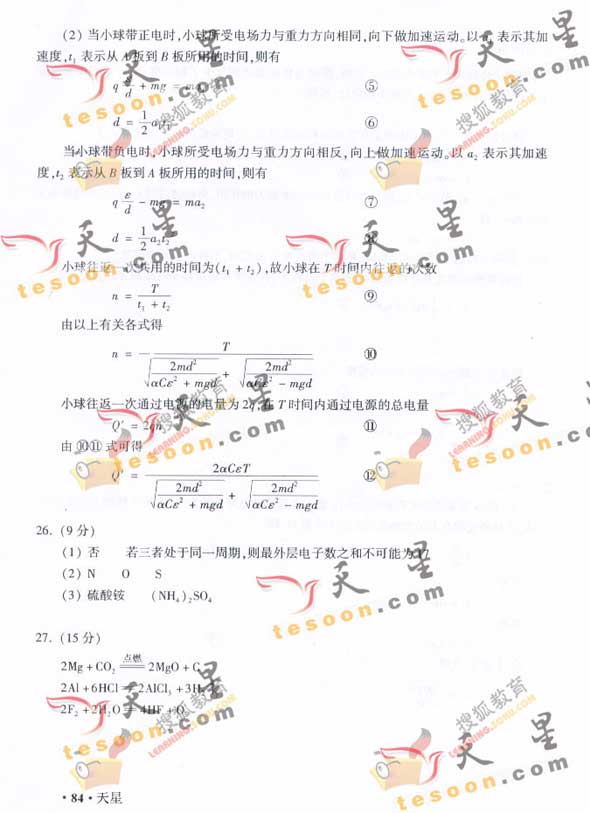 (2) 当小球带正电时,小球所受电场力与重力方向相同,向下做加速运动。以 a₁ 表示其加
速度,t₁ 表示从 A 板到 B 板所用的时间,则有
q ε/d + mg = ma₁ ⑤
d = 1/2 a₁t₁² ⑥
当小球带负电时,小球所受电场力与重力方向相反,向上做加速运动。以 a₂ 表示其加速
度,t₂ 表示从 B 板到 A 板所用的时间,则有
q ε/d - mg = ma₂ ⑦
d = 1/2 a₂t₂²
小球往返一次共用的时间为(t₁ + t₂),故小球在 T 时间内往返的次数
n = T/(t₁ + t₂) ⑨
由以上有关各式得
n = T/(√(2md²/(αCε² + mgd)) + √(2md²/(αCε² - mgd))) ⑩
小球往返一次通过电源的电量为 2q,在 T 时间内通过电源的总电量
Q′ = 2qn ⑪
由 ⑩⑪ 式可得
Q′ = 2αCεT/(√(2md²/(αCε² + mgd)) + √(2md²/(αCε² - mgd))) ⑫
26. (9 分)
(1) 否 若三者处于同一周期,则最外层电子数之和不可能为 17
(2) N O S
(3) 硫酸铵 (NH₄)₂SO₄
27. (15 分)
2Mg + CO₂ =点燃= 2MgO + C
2Al + 6HCl = 2AlCl₃ + 3H₂
2F₂ + 2H₂O = 4HF + O₂
· 84 · 天星
天星
tesoon.com
搜狐教育
LEARNING.SOHU.COM